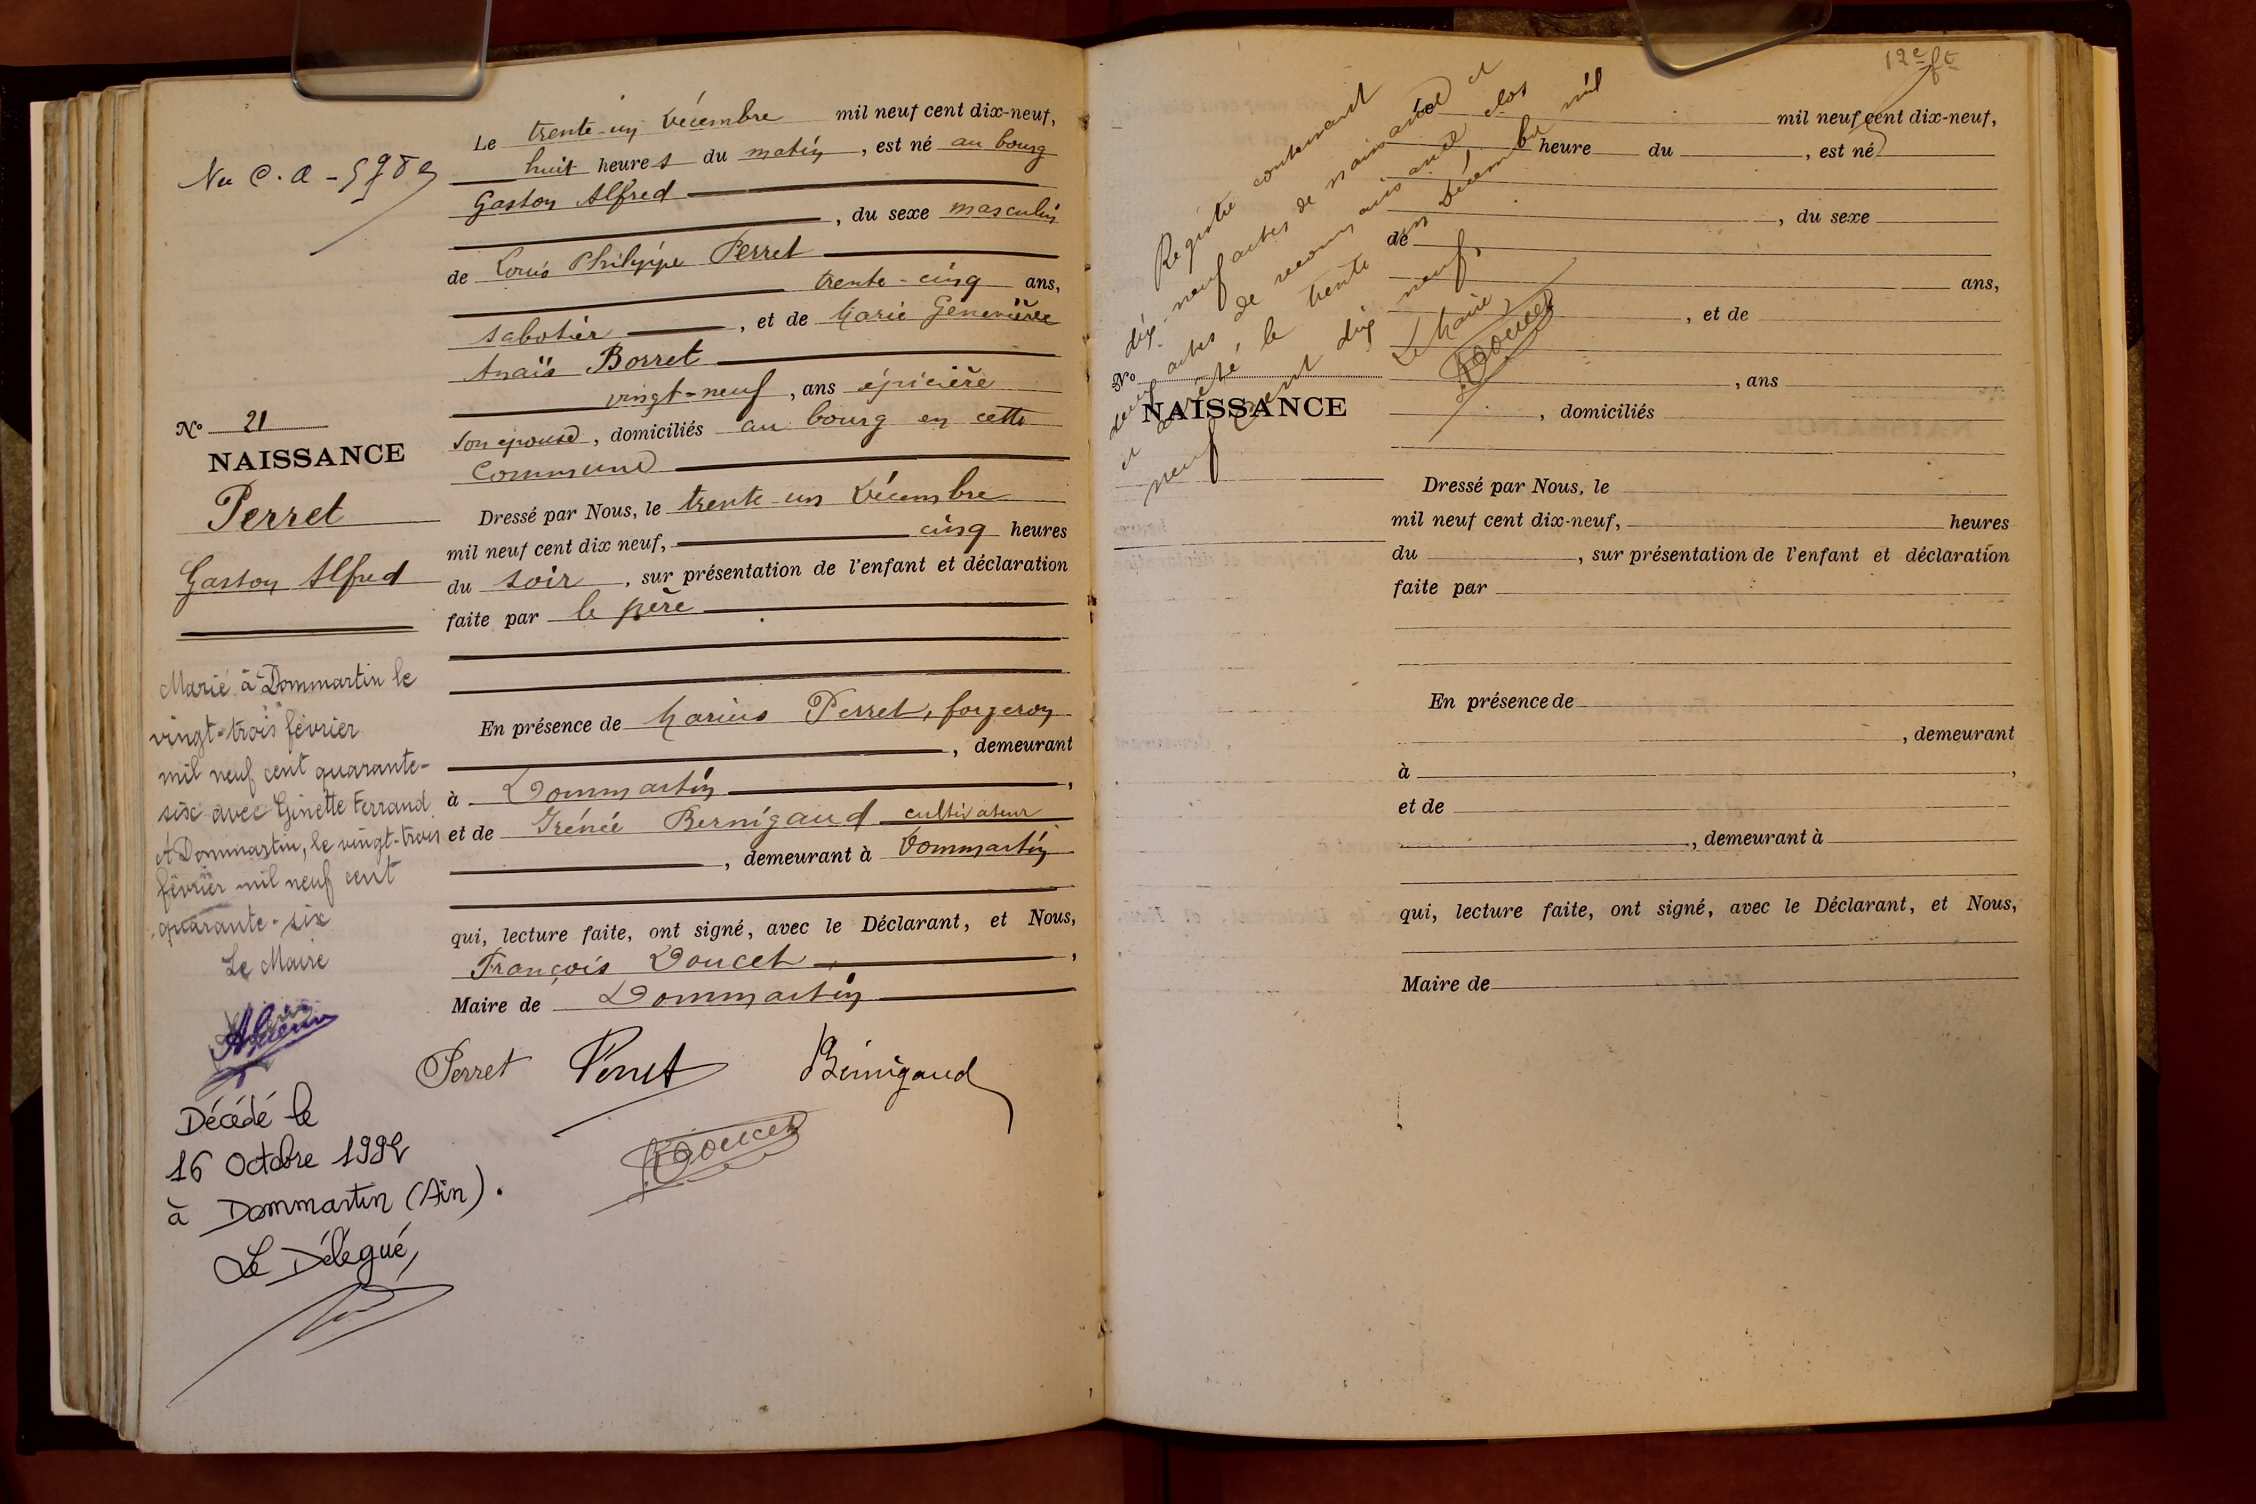 Le trente-un Décembre mil neuf cent dix-neuf,
huit heures du matin, est né au bourg
Gaston Alfred
, du sexe masculin
de Louis Philippe Perret
trente-cinq ans,
sabotier, et de Marie Geneviève
Anaïs Borret
vingt-neuf, ans épicière
son épouse, domiciliés au bourg en cette
Commune
Dressé par Nous, le trente-un Décembre
mil neuf cent dix neuf, cinq heures
du soir, sur présentation de l'enfant et déclaration
faite par le père
En présence de Marius Perret, forgeron
, demeurant
à Dommartin,
et de Irénée Bernigaud cultivateur
, demeurant à Dommartin
qui, lecture faite, ont signé, avec le Déclarant, et Nous,
François Doucet,
Maire de Dommartin
Perret Perret Bernigaud
Doucet
Nu C. a
N° 21
NAISSANCE
Perret
Gaston Alfred
Marié à Dommartin le
vingt-trois février
mil neuf cent quarante-
six avec Ginette Ferrand
A Dommartin, le vingt-trois
février mil neuf cent
quarante-six
Le Maire
Décédé le
16 Octobre 1992
à Dommartin (Ain).
Le Délégué,
12e ft
Registre contenant
dix-neuf actes de naissance et
deux actes de reconnaissance clos
et arrêté, le trente un Décembre mil
neuf cent dix neuf,
Le Maire
Doucet
mil neuf cent dix-neuf,
heure du , est né
, du sexe
de
ans,
, et de
N°
NAISSANCE
, ans
, domiciliés
Dressé par Nous, le
mil neuf cent dix-neuf, heures
du , sur présentation de l'enfant et déclaration
faite par
En présence de
, demeurant
à ,
et de
, demeurant à
qui, lecture faite, ont signé, avec le Déclarant, et Nous,
Maire de